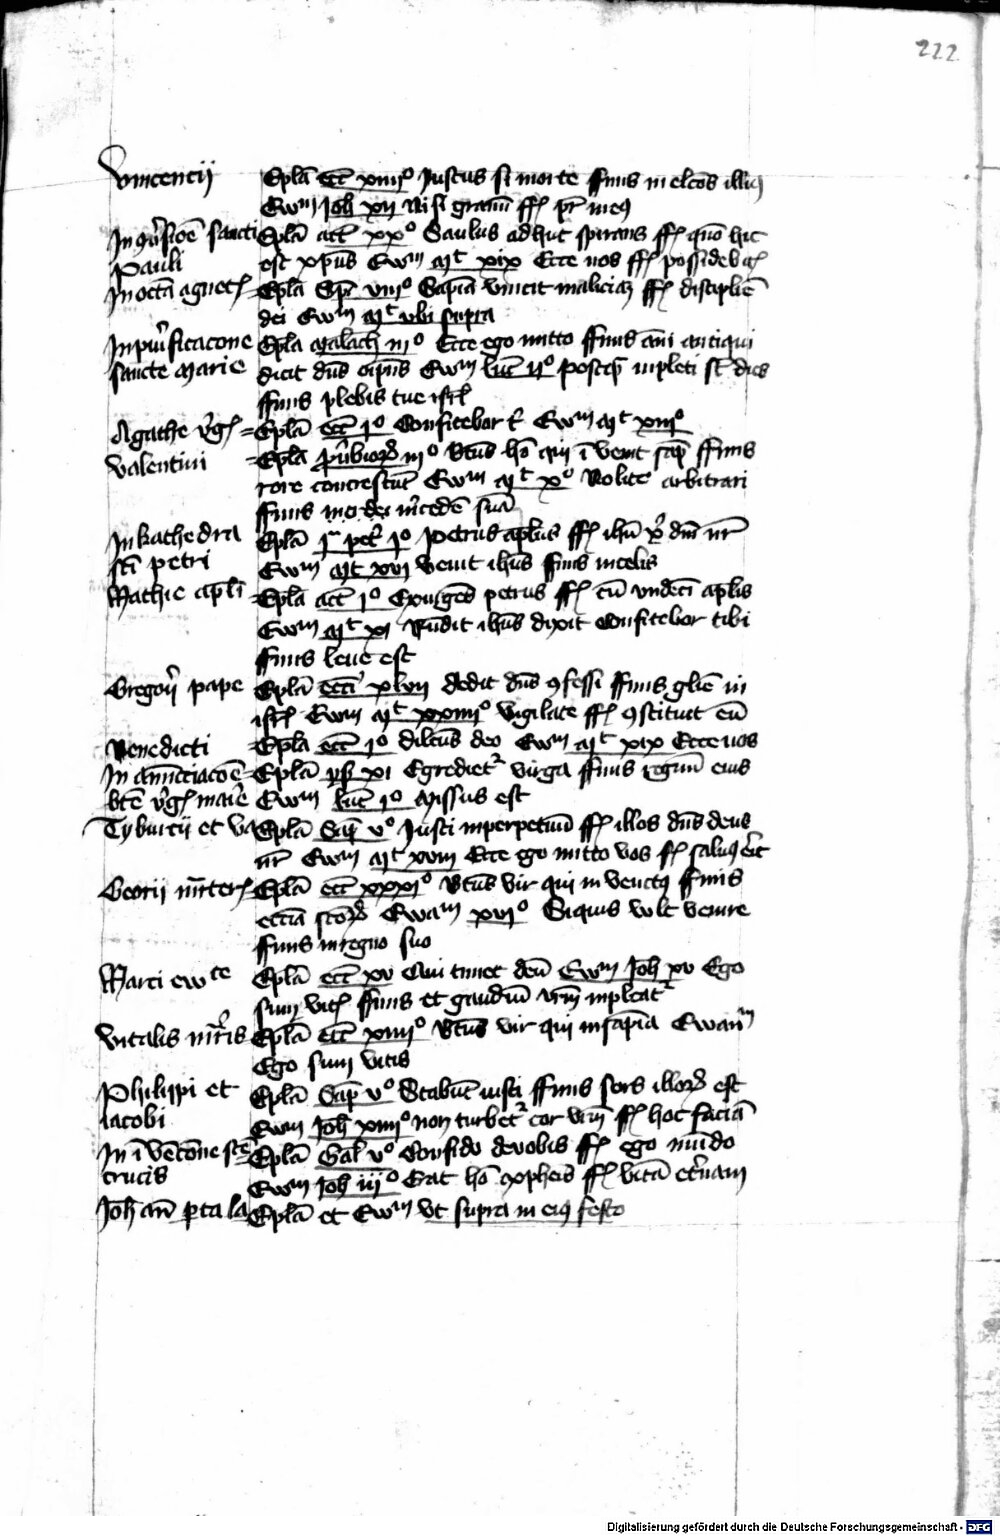 222
Vincencii Epla ecc xiiii° Justus si morte ffinis in elcos illiꝫ
Ewm Joh xii Nisi granu ff pr meꝫ
In ꝯusioe sancti Epla act xx° Saulus adhuc spirans ff quo hic
Pauli est xpus Ewm mt xix Ecce nos ff possidebit
In octa agnet Epla Sap viii° Sapia vincit malicia ff disciplie
dei Ewm mt ubi supra
In purificacone Epla malach iii° Ecce ego mitto ffinis ani antiqui
sancte marie dicit dns oipns Ewm luc ii° postqꝫ inpleti st dies
ffinis plebis tue isrl
Agathe vg Epla ecc i° Confitebor t Ewm mt xiii°
Valentini Epla pubior iii° Btus ho qui i venit sap ffinis
rore concrescut Ewm mt x° Nolite arbitrari
ffinis mercede sua
In kathedra Epla i pet i° Petrus aplus ff ihu x dni nr
sti petri Ewm mt xvi venit ihus ffinis in celis
Mathie apli Epla act i° Exurges petrus ff cu undeci aplis
Ewm mt xi Rndit ihus dixit Confitebor tibi
ffinis leue est
Gregorii pape Epla ecci xlvii dedit dns ꝯfessi ffinis glie in
isrl Ewm mt xxiiii° vigilate ff ꝯstituit eu
Benedicti Epla ecc i° dilcus deo Ewm mt xix Ecce nos
In annuciacoe Epla ys xi Egrediet virga ffinis regnu eius
bte vg marie Ewm luc i° Missus est
Tyburcii et va Epla Sap v° Justi inperpetuu ff illos dns deus
nr Ewm mt xviii Ecce ego mitto vos ff saluꝫ erit
Georii mrter Epla ecc xxxi° Btus vir qui inventꝫ ffinis
eccia scor Ewam xvi° Siquis vlt venire
ffinis in regno suo
Marci ewte Epla ecc xv Qui timet deu Ewm Joh xv Ego
sum vit ffinis et gaudiu vrm inpleat
Vitalis mris Epla ecc xiiii° Btus vir qui in sapia Ewanm
Ego sum vitis
Philippi et Epla Sap v° Stabut iusti ffinis sors illor est
iacobi Ewm Joh xiiii° non turbet cor vrm ff hoc facia
In i vecone ste Epla Gal v° Confido de vobis ff ego mudo
crucis Ewm Joh iii° Erat ho ex pheis ff vita eternam
Joh an porta la Epla et Ewm Vt supra in eiꝫ festo
Digitalisierung gefördert durch die Deutsche Forschungsgemeinschaft - DFG